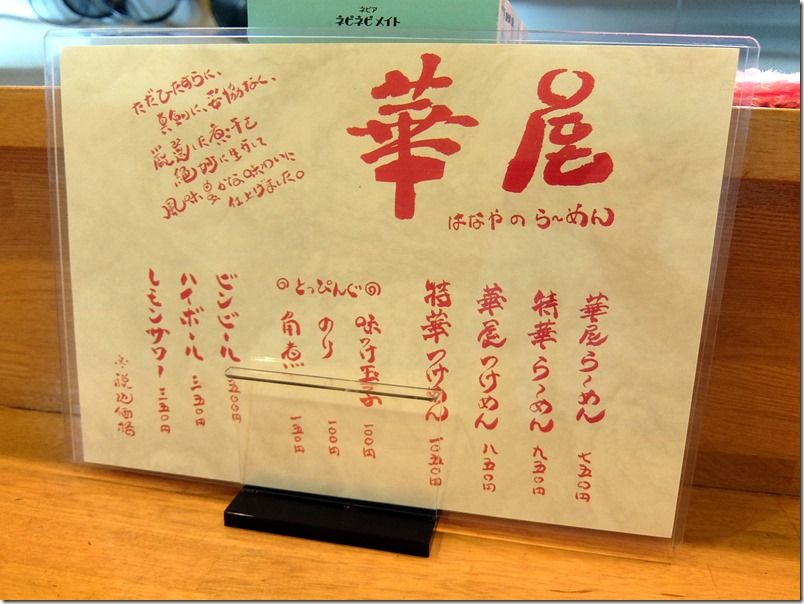 ネピア
ネピネピメイト
華屋
はなやのら〜めん
ただひたすらに、
真剣に、妥協なく、
厳選した煮干を
絶妙に生かして
風味豊かな味わいに
仕上げました。
華屋ら〜めん 七五〇円
特華ら〜めん 九五〇円
華屋つけめん 八五〇円
特華つけめん 一〇五〇円
のとっぴんぐの
味つけ玉子 一〇〇円
のり 一〇〇円
角煮 一五〇円
ビンビール 五〇〇円
ハイボール 三五〇円
レモンサワー 三五〇円
※税込価格